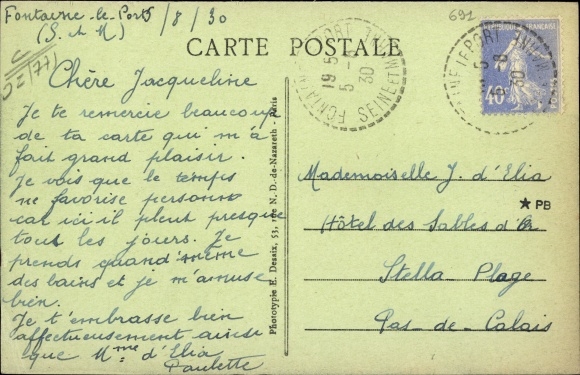 Fontaine-le-Port 5/8/30
(S. & M)
691
CARTE POSTALE
Chère Jacqueline
Je te remercie beaucoup
de ta carte qui m'a
fait grand plaisir.
Je vois que le temps
ne favorise personne
car ici il pleut presque
tout les jours. Je
prends quand même
des bains et je m'amuse
bien.
Je t'embrasse bien
affectueusement ainsi
que Mme d'Elia
Paulette
Phototypie E. Desaix, 53, rue N. D. de-Nazareth - Paris
FONTAINE LE PORT
SEINE ET MARNE
19 5
5 -8
30
40c
Mademoiselle J. d'Elia
★ PB
Hôtel des Sables d'Or
Stella Plage
Pas-de-Calais